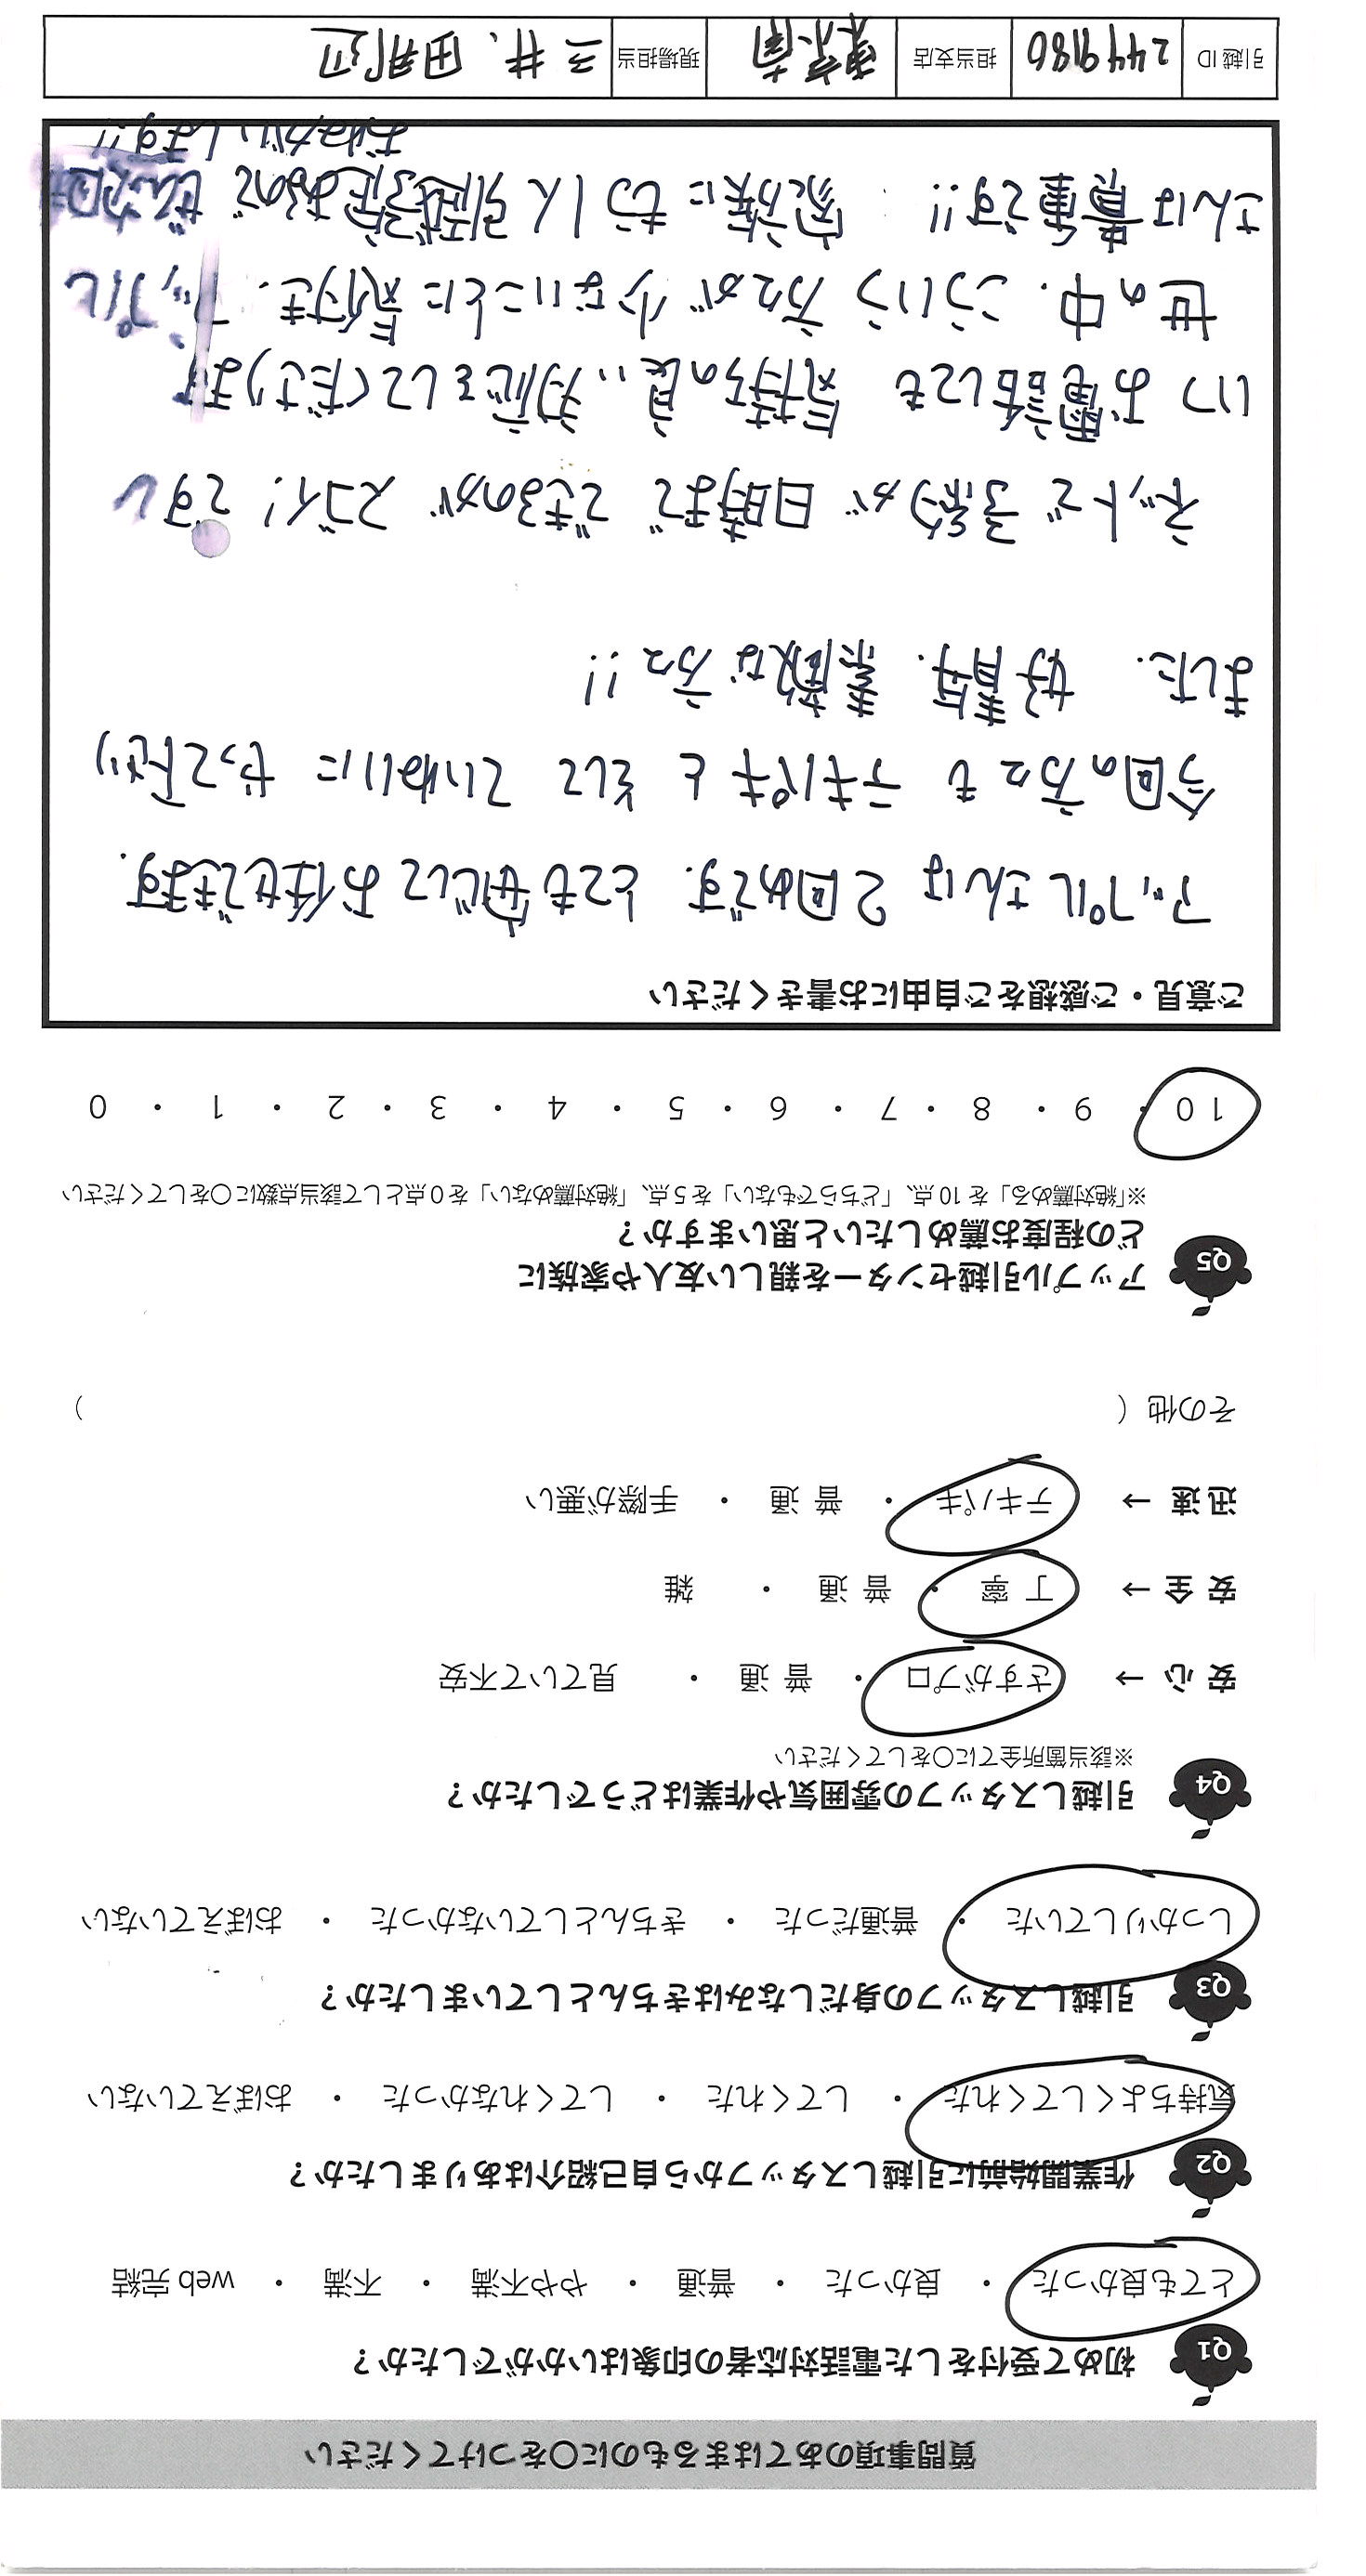 質問事項のあてはまるものに○をつけてください
Q1 初めて受付をした電話対応者の印象はいかがでしたか？
とても良かった ・ 良かった ・ 普通 ・ やや不満 ・ 不満 ・ web 完結
Q2 作業開始前に引越しスタッフから自己紹介はありましたか？
気持ちよくしてくれた ・ してくれた ・ してくれなかった ・ おぼえていない
Q3 引越しスタッフの身だしなみはきちんとしていましたか？
しっかりしていた ・ 普通だった ・ きちんとしていなかった ・ おぼえていない
Q4 引越しスタッフの雰囲気や作業はどうでしたか？
※該当箇所全てに○をしてください
安 心 → さすがプロ ・ 普 通 ・ 見ていて不安
安 全 → 丁 寧 ・ 普 通 ・ 雑
迅 速 → テキパキ ・ 普 通 ・ 手際が悪い
その他（ ）
Q5 アップル引越センターを親しい友人や家族に
どの程度お薦めしたいと思いますか？
※「絶対薦める」を 10 点、「どちらでもない」を 5 点、「絶対薦めない」を 0 点として該当点数に○をしてください
10 ・ 9 ・ 8 ・ 7 ・ 6 ・ 5 ・ 4 ・ 3 ・ 2 ・ 1 ・ 0
ご意見・ご感想をご自由にお書きください
アップルさんは 2回めです. とても安心して お任せできます.
今回の方々も テキパキと そして ていねいに やって下さり
ました. 好青年. 素敵な方々!!
ネットで 予約が 日時まで できるのが スゴイ! ですし
いつ お電話しても 気持ちの良い 対応をしてくださります
世の中. こういう 方々が 少ないことに 気付き. アップル
さんは 貴重です!! 家族に もう1人 引越予定あるので ぜひ次回
おねがいします!!
引越 ID 2449180 担当支店 東京南 現場担当 三井、田那辺